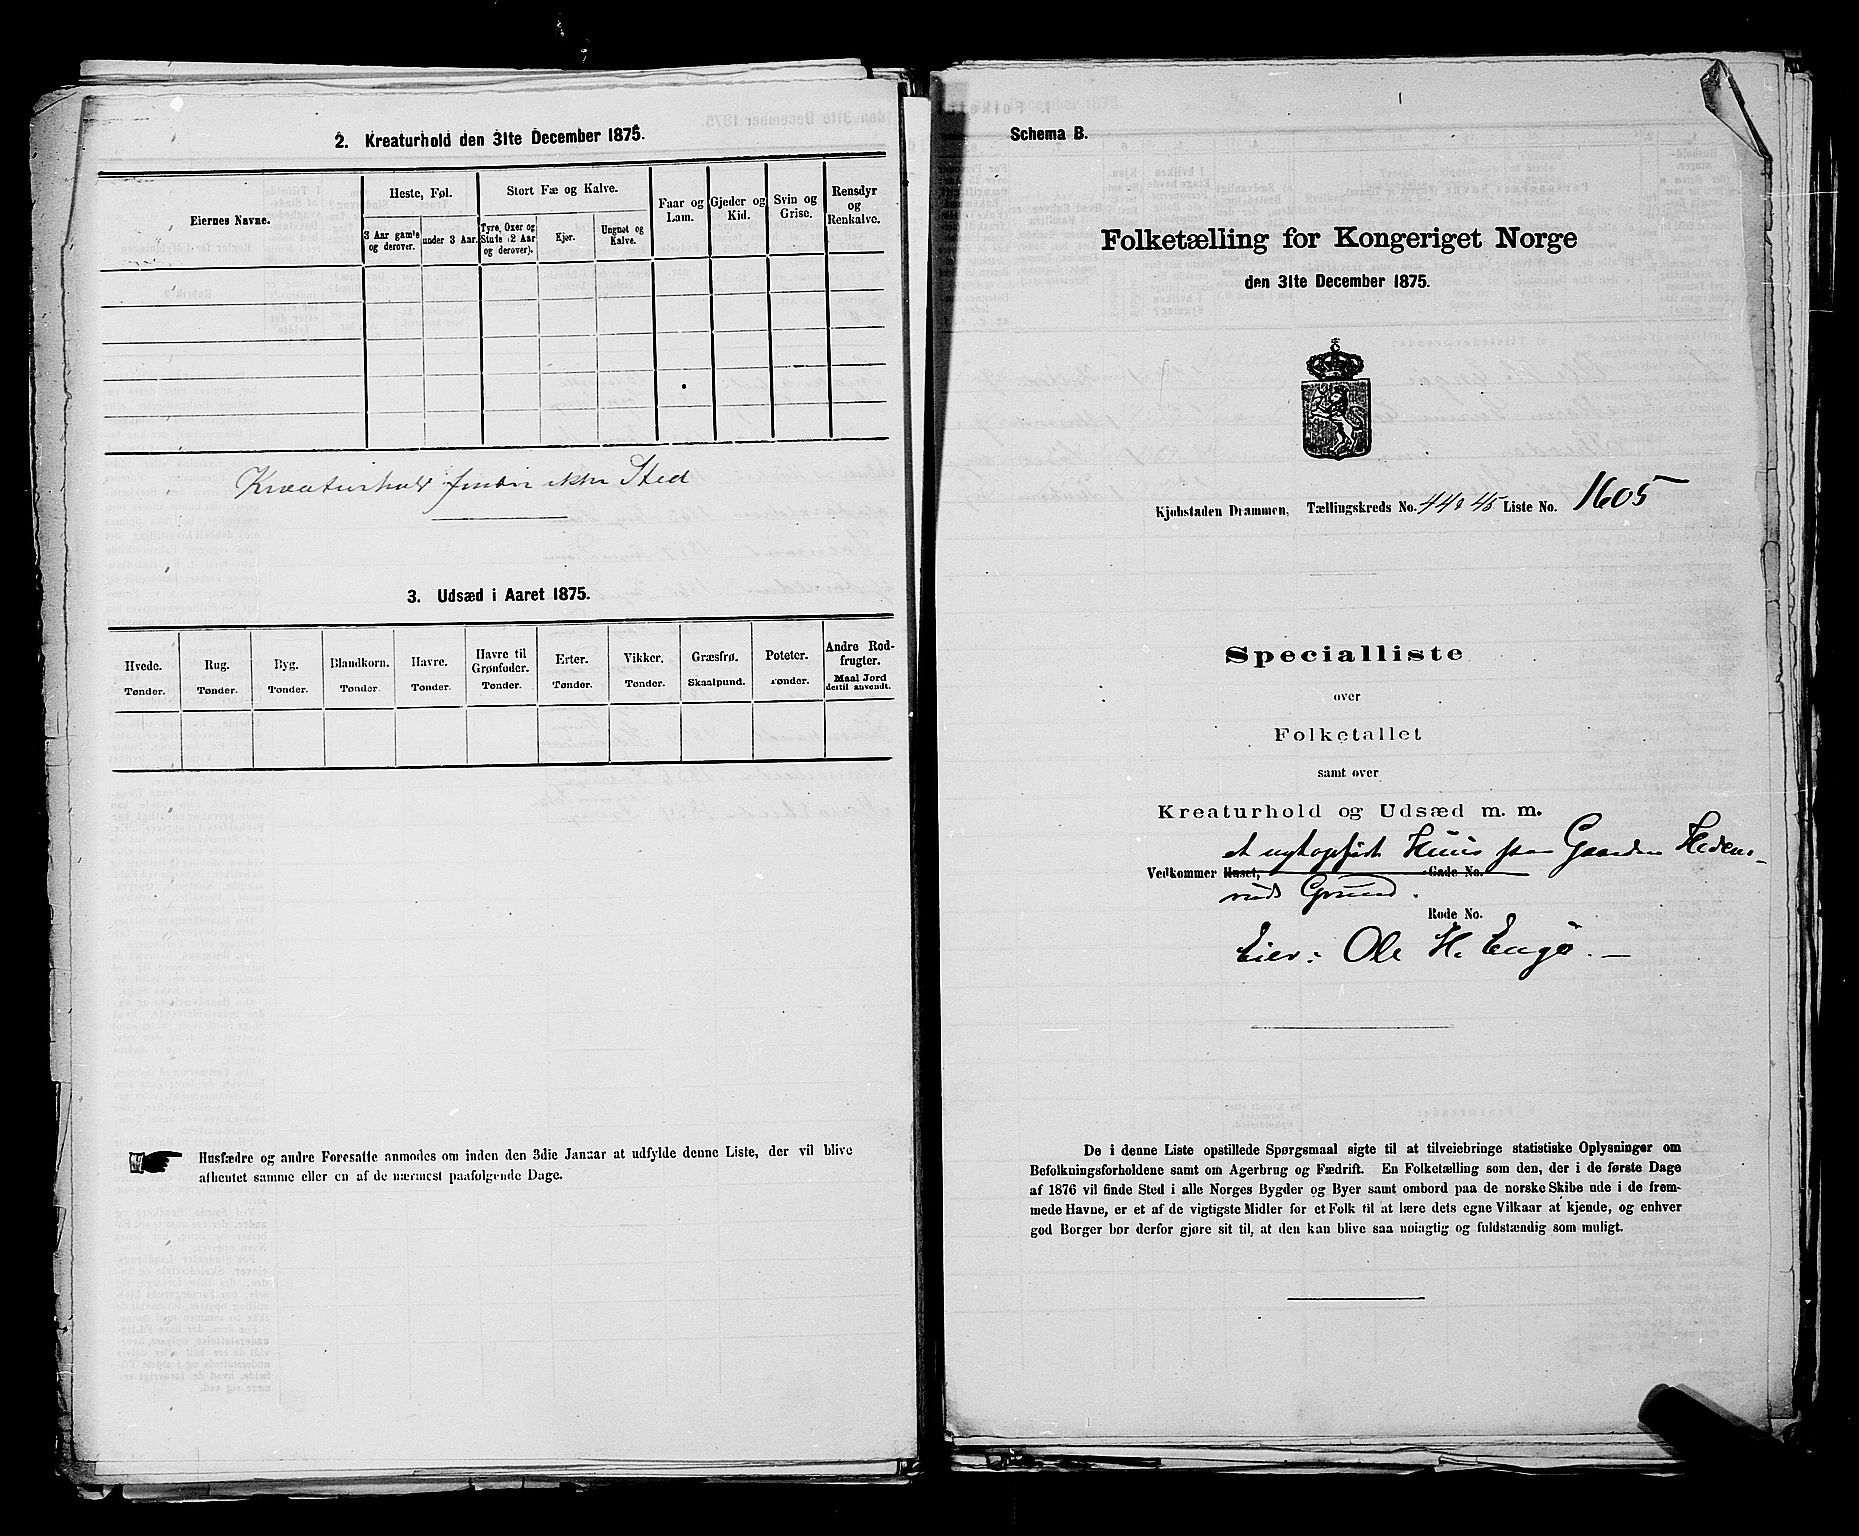 2. Kreaturhold den 31te December 1875.
Eiernes Navne.
Heste, Føl.
Stort Fæ og Kalve.
Faar og Lam.
Gjeder og Kid.
Svin og Grise.
Rensdyr og Renkalve.
3 Aar gamle og derover.
under 3 Aar.
Tyre, Oxer og Stute (2 Aar og derover).
Kjør.
Ungnøt og Kalve.
Kreaturhold finder ikke Sted
3. Udsæd i Aaret 1875.
Hvede. Tønder.
Rug. Tønder.
Byg. Tønder.
Blandkorn. Tønder.
Havre. Tønder.
Havre til Grønfoder. Tønder.
Erter. Tønder.
Vikker. Tønder.
Græsfrø. Skaalpund.
Poteter. Tønder.
Andre Rodfrugter. Maal Jord dertil anvendt.
Husfædre og andre Foresatte anmodes om inden den 3die Januar at udfylde denne Liste, der vil blive
afhentet samme eller en af de nærmest paafølgende Dage.
Schema B.
Folketælling for Kongeriget Norge
den 31te December 1875.
Kjøbstaden Drammen, Tællingskreds No. 44 & 45 Liste No. 1605
Specialliste
over
Folketallet
samt over
Kreaturhold og Udsæd m. m.
et nytopført Huus paa Gaarden Hedens-
Vedkommer Huset, Gade No.
ruds Grund.
Rode No.
Eier: Ole H. Engø. —
De i denne Liste opstillede Spørgsmaal sigte til at tilveiebringe statistiske Oplysninger om
Befolkningsforholdene samt om Agerbrug og Fædrift. En Folketælling som den, der i de første Dage
af 1876 vil finde Sted i alle Norges Bygder og Byer samt ombord paa de norske Skibe ude i de frem-
mede Havne, er et af de vigtigste Midler for et Folk til at lære dets egne Vilkaar at kjende, og enhver
god Borger bør derfor gjøre sit til, at den kan blive saa nøiagtig og fuldstændig som muligt.